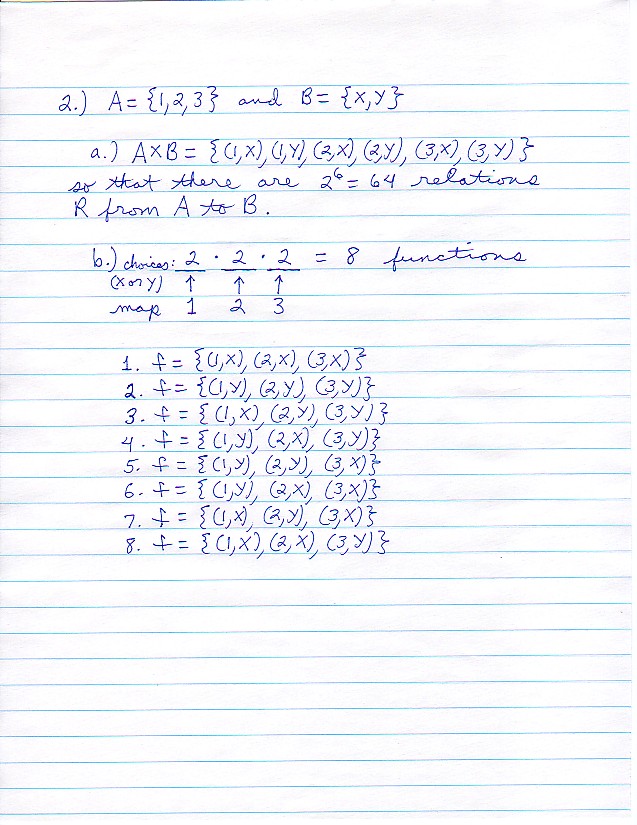 2.) A = {1,2,3} and B = {x,y}
a.) A×B = {(1,x),(1,y),(2,x),(2,y),(3,x),(3,y)}
so that there are 2⁶ = 64 relations
R from A to B.
b.) choices: 2 · 2 · 2 = 8 functions
(x or y) ↑ ↑ ↑
map 1 2 3
1. f = {(1,x),(2,x),(3,x)}
2. f = {(1,y),(2,y),(3,y)}
3. f = {(1,x),(2,y),(3,y)}
4. f = {(1,y),(2,x),(3,y)}
5. f = {(1,y),(2,y),(3,x)}
6. f = {(1,y),(2,x),(3,x)}
7. f = {(1,x),(2,y),(3,x)}
8. f = {(1,x),(2,x),(3,y)}